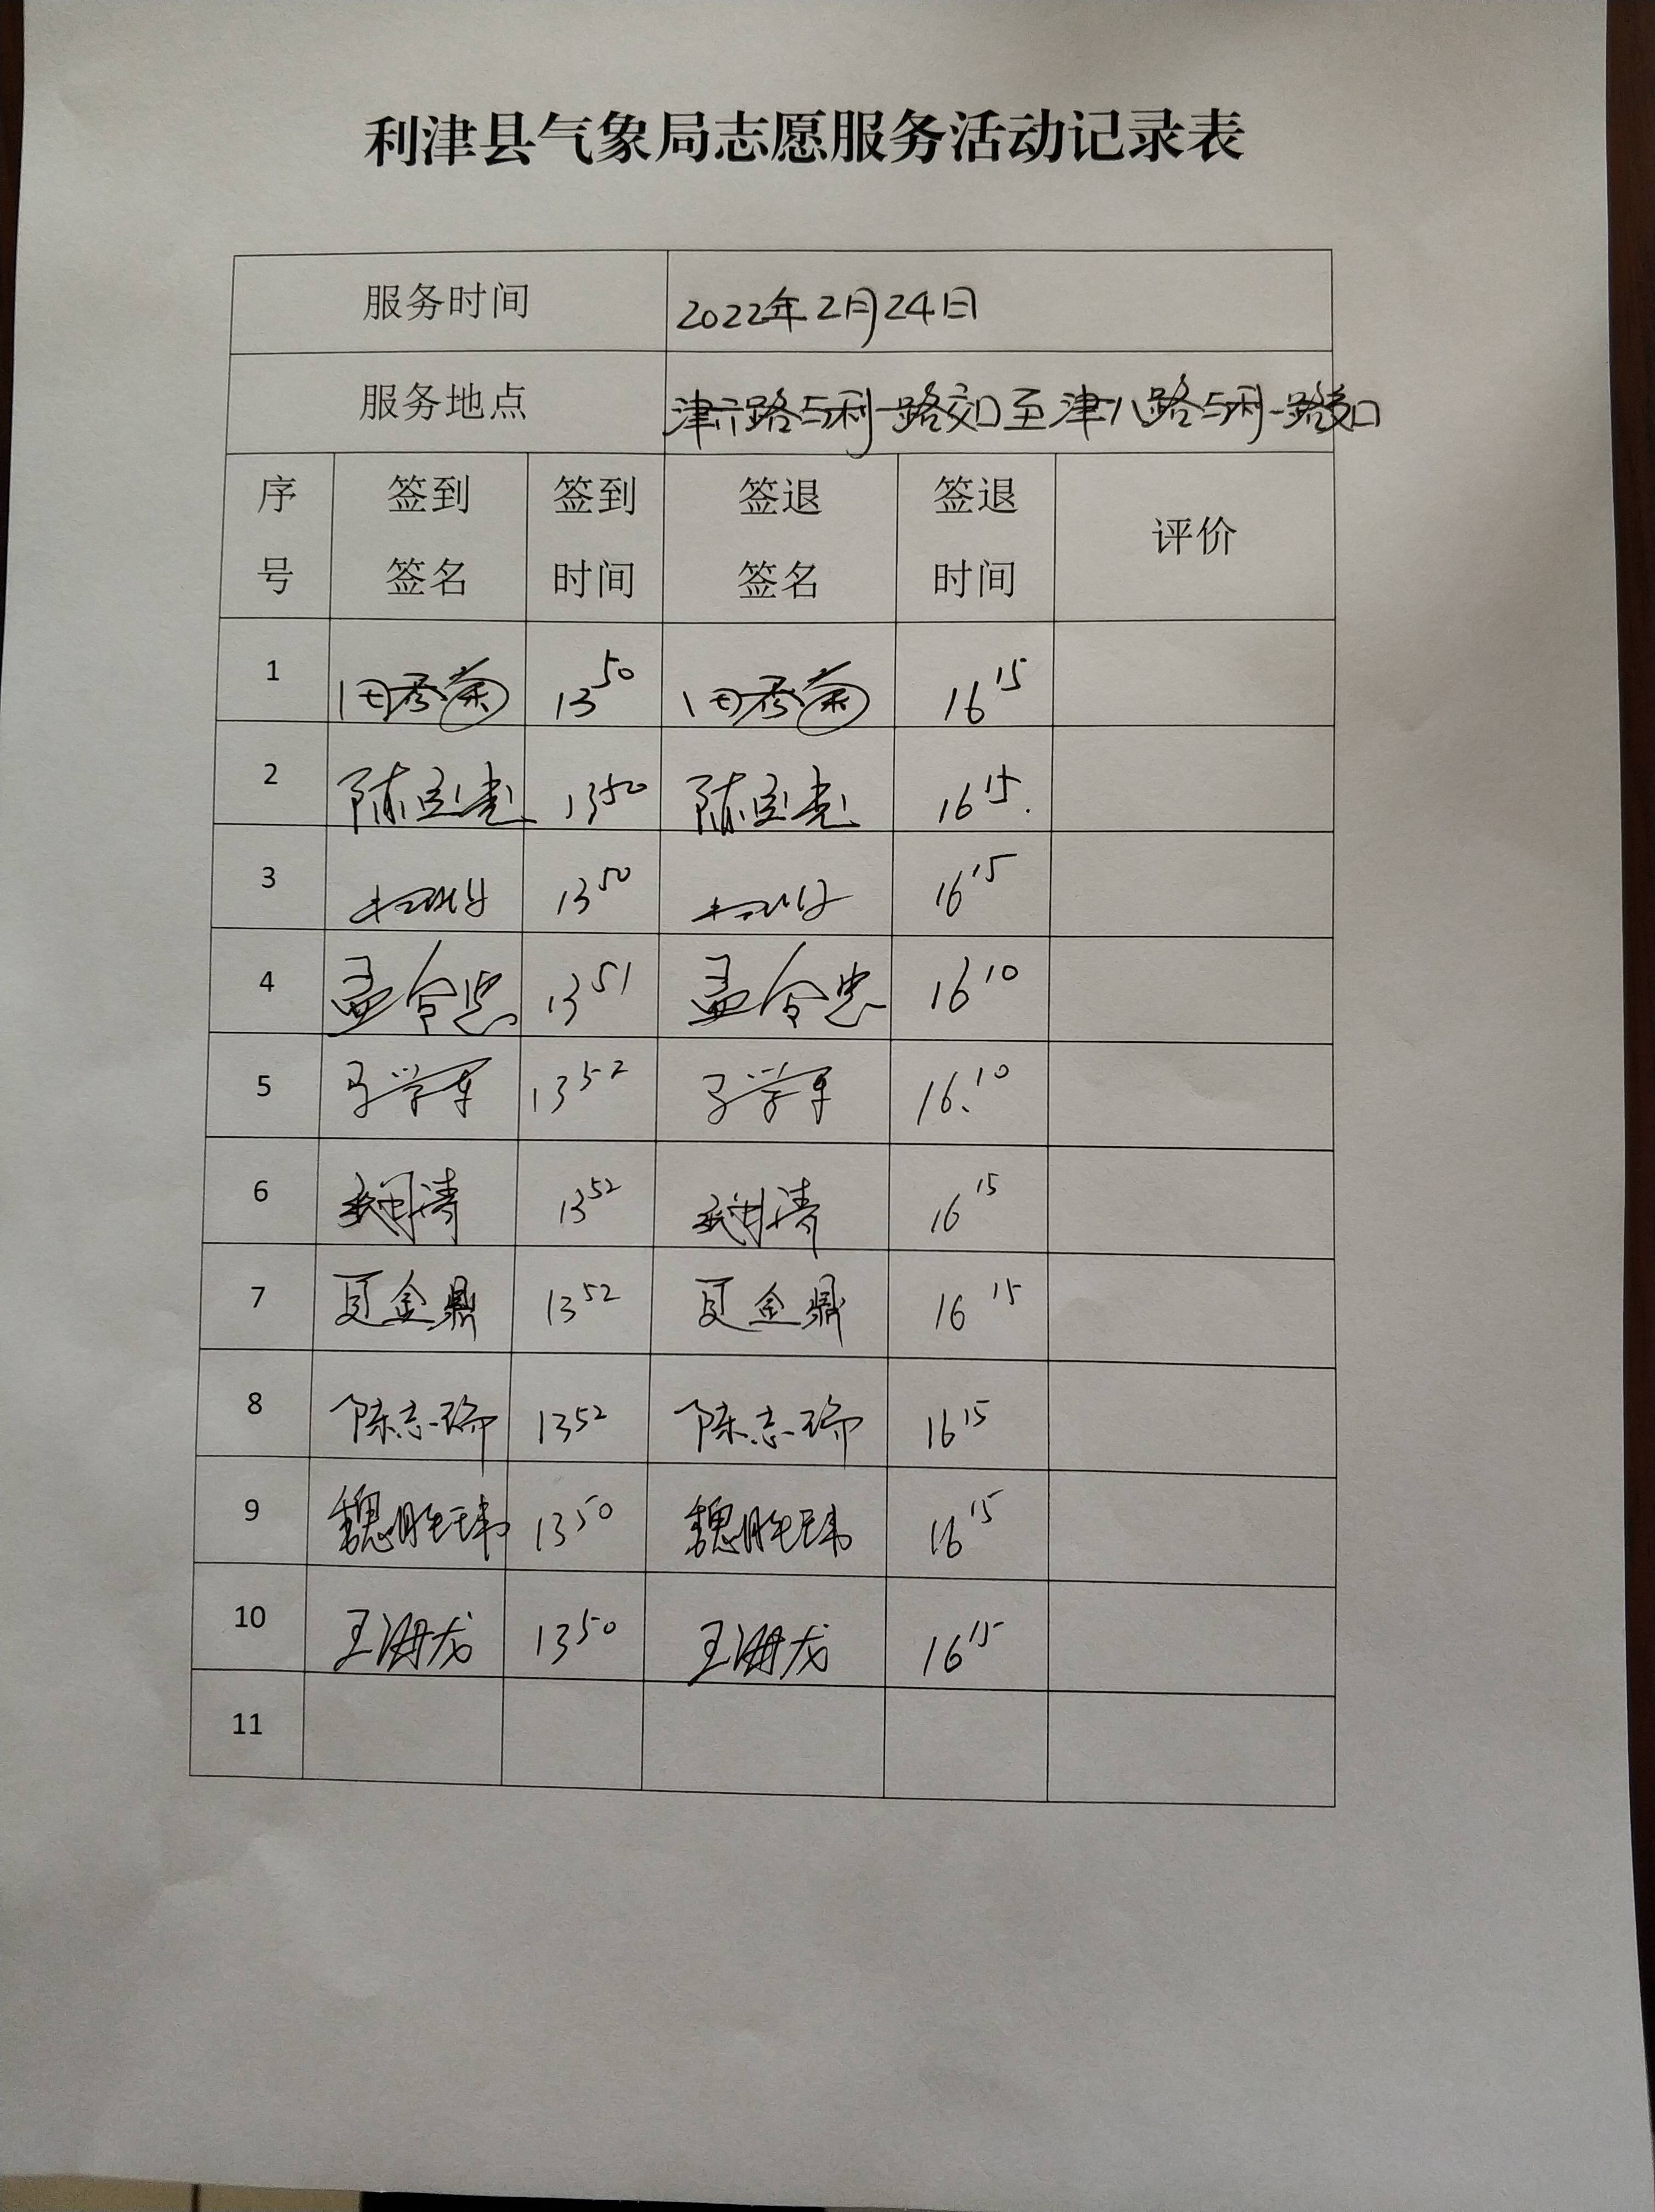 利津县气象局志愿服务活动记录表
服务时间 2022年2月24日
服务地点 津六路与利一路交口至津八路与利一路交口
序号 签到签名 签到时间 签退签名 签退时间 评价
1 田秀菊 13 50 田秀菊 16 15
2 陈 13 50 陈 16 15.
3 13 50 16 15
4 孟令忠 13 51 孟令忠 16 10
5 学军 13 52 学军 16. 10
6 清 13 52 清 16 15
7 夏金鼎 13 52 夏金鼎 16 15
8 陈志瑞 13 52 陈志瑞 16 15
9 魏胜玮 13 50 魏胜玮 16 15
10 王海龙 13 50 王海龙 16 15
11